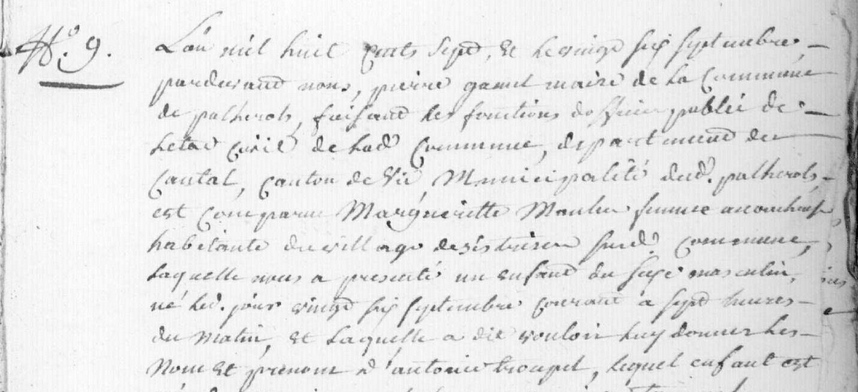 N.º 9.
L'an mil huit cents sept, et le vingt six septembre,
pardevant nous, pierre gamet maire de la Commune
de palherols, faisant les fonctions d'officier public de
Letat Civil de lad. Commune, departement du
Cantal, Canton de Vic Municipalité dud. palherols
est Comparue Margueritte Moulin femme acoucheuse
habitante du village de surd. Commune,
Laquelle nous a presenté un enfant du sexe masculin,
né led. jour vingt six septembre courant a sept heures
du Matin, et Laquelle a dit vouloir luy donner les
Nom et prénom d'antoine troupel, lequel enfant est